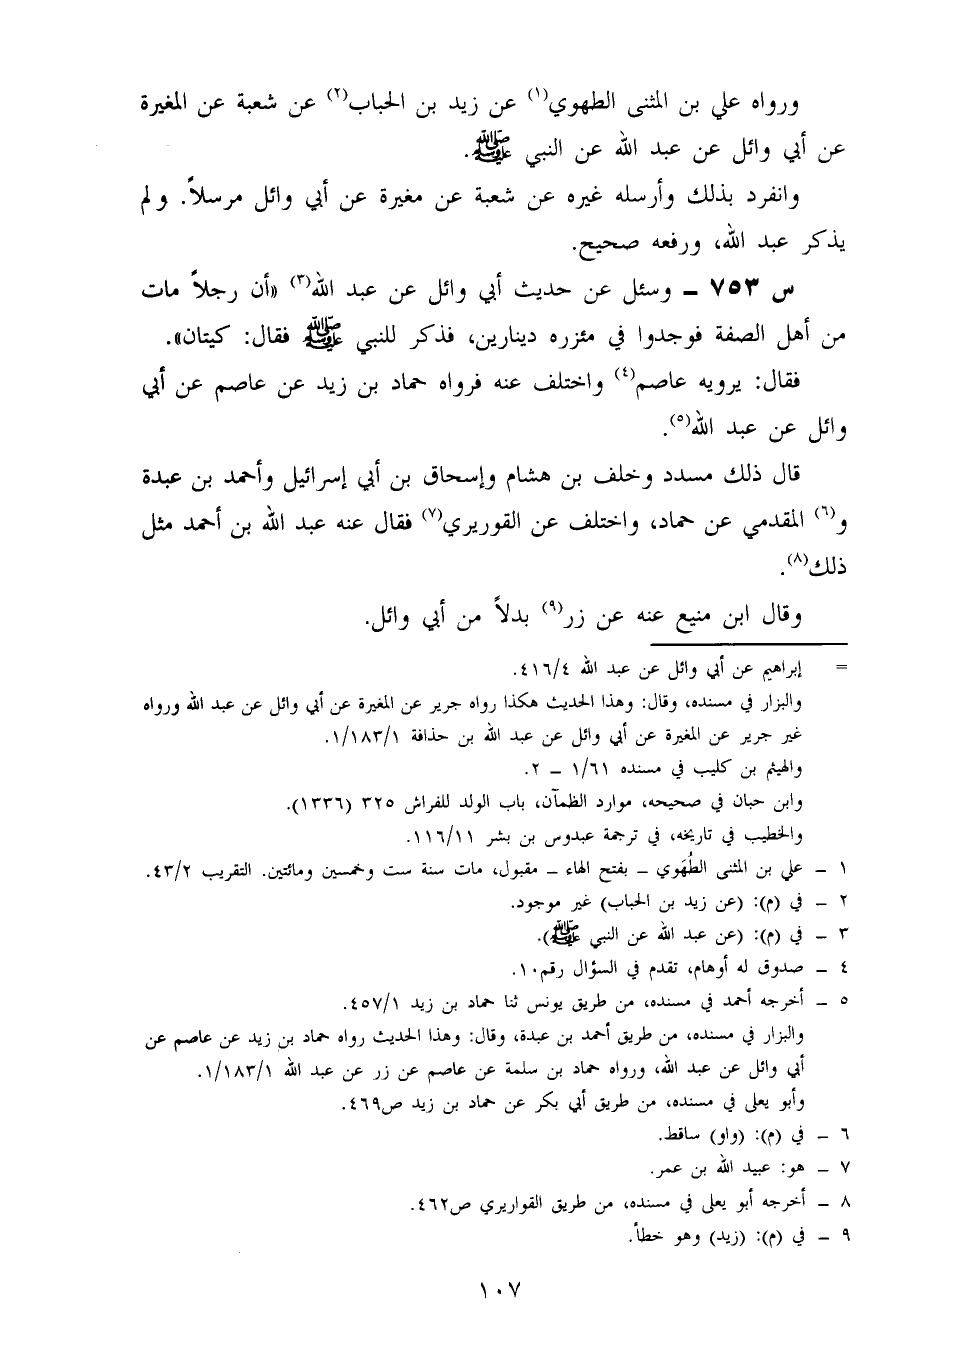 ورواه علي بن المثنى الطهوي(١) عن زيد بن الحباب(٢) عن شعبة عن المغيرة
عن أبي وائل عن عبد الله عن النبي ﷺ.
وانفرد بذلك وأرسله غيره عن شعبة عن مغيرة عن أبي وائل مرسلاً. ولم
يذكر عبد الله، ورفعه صحيح.
س ٧٥٣ ـ وسئل عن حديث أبي وائل عن عبد الله(٣) «أن رجلاً مات
من أهل الصفة فوجدوا في مئزره دينارين، فذكر للنبي ﷺ فقال: كيتان».
فقال: يرويه عاصم(٤) واختلف عنه فرواه حماد بن زيد عن عاصم عن أبي
وائل عن عبد الله(٥).
قال ذلك مسدد وخلف بن هشام وإسحاق بن أبي إسرائيل وأحمد بن عبدة
و(٦) المقدمي عن حماد، واختلف عن القوريري(٧) فقال عنه عبد الله بن أحمد مثل
ذلك(٨).
وقال ابن منيع عنه عن زر(٩) بدلاً من أبي وائل.
= إبراهيم عن أبي وائل عن عبد الله ٤١٦/٤.
والبزار في مسنده، وقال: وهذا الحديث هكذا رواه جرير عن المغيرة عن أبي وائل عن عبد الله ورواه
غير جرير عن المغيرة عن أبي وائل عن عبد الله بن حذافة ١/١٨٣/١.
والهيثم بن كليب في مسنده ١/٦١ ـ ٢.
وابن حبان في صحيحه، موارد الظمآن، باب الولد للفراش ٣٢٥ (١٣٣٦).
والخطيب في تاريخه، في ترجمة عبدوس بن بشر ١١٦/١١.
١ ـ علي بن المثنى الطُهَوي ـ بفتح الهاء ـ مقبول، مات سنة ست وخمسين ومائتين. التقريب ٤٣/٢.
٢ ـ في (م): (عن زيد بن الحباب) غير موجود.
٣ ـ في (م): (عن عبد الله عن النبي ﷺ).
٤ ـ صدوق له أوهام، تقدم في السؤال رقم١٠.
٥ ـ أخرجه أحمد في مسنده، من طريق يونس ثنا حماد بن زيد ٤٥٧/١.
والبزار في مسنده، من طريق أحمد بن عبدة، وقال: وهذا الحديث رواه حماد بن زيد عن عاصم عن
أبي وائل عن عبد الله، ورواه حماد بن سلمة عن عاصم عن زر عن عبد الله ١/١٨٣/١.
وأبو يعلى في مسنده، من طريق أبي بكر عن حماد بن زيد ص٤٦٩.
٦ ـ في (م): (واو) ساقط.
٧ ـ هو: عبيد الله بن عمر.
٨ ـ أخرجه أبو يعلى في مسنده، من طريق القواريري ص٤٦٢.
٩ ـ في (م): (زيد) وهو خطأ.
١٠٧